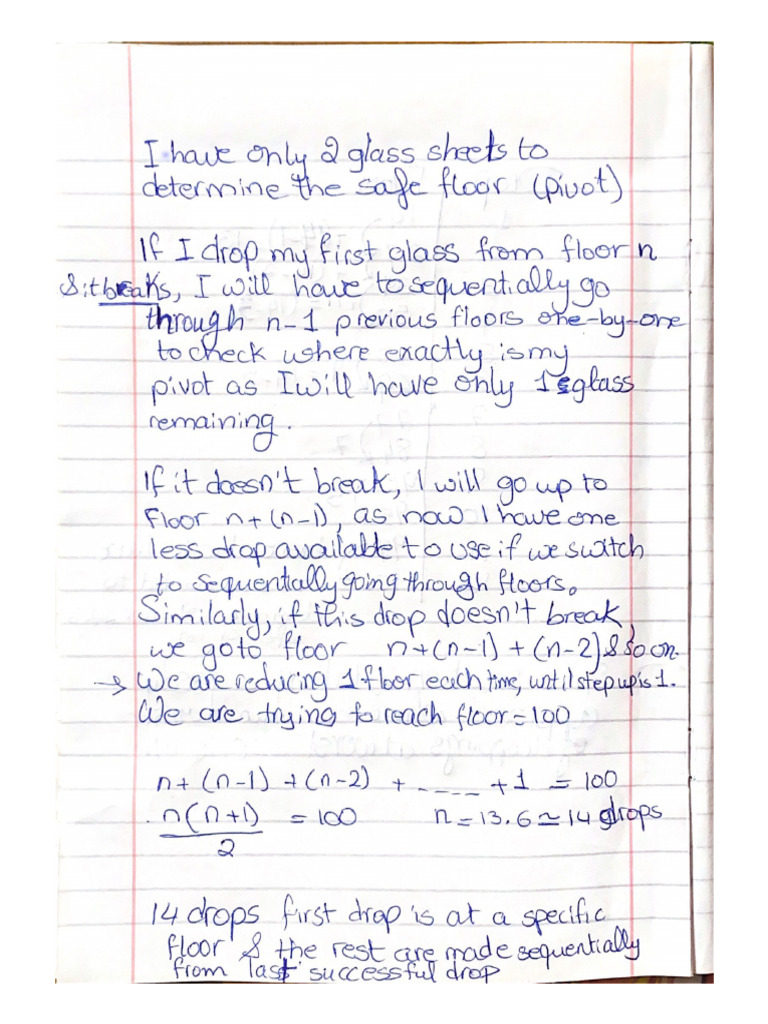 I have only 2 glass sheets to
determine the safe floor (pivot)
If I drop my first glass from floor n
& it breaks, I will have to sequentially go
through n-1 previous floors one-by-one
to check where exactly is my
pivot as I will have only 1 glass
remaining.
If it doesn't break, I will go up to
floor n+(n-1), as now I have one
less drop available to use if we switch
to sequentially going through floors.
Similarly, if this drop doesn't break,
we go to floor n+(n-1)+(n-2) & so on.
→ We are reducing 1 floor each time, until step up is 1.
We are trying to reach floor = 100
n+(n-1)+(n-2) + ---- +1 = 100
n(n+1) = 100 n = 13.6 ≃ 14 drops
2
14 drops first drop is at a specific
floor & the rest are made sequentially
from last successful drop